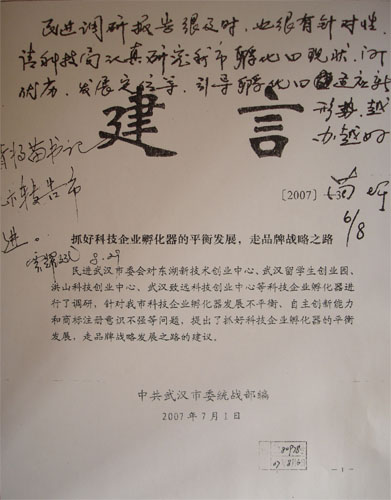 民进调研报告很及时，也很有针对性。
请科技局认真研究我市孵化四现状、
优劣、发展定位等，引导孵化四
适应新
形势，越
办越好
6/8
建言
[2007]
抓好科技企业孵化器的平衡发展，走品牌战略之路
8.29
民进武汉市委会对东湖新技术创业中心、武汉留学生创业园、
洪山科技创业中心、武汉致远科技创业中心等科技企业孵化器进
行了调研，针对我市科技企业孵化器发展不平衡、自主创新能力
和商标注册意识不强等问题，提出了抓好科技企业孵化器的平衡
发展，走品牌战略发展之路的建议。
中共武汉市委统战部编
2007年7月1日
- 1 -